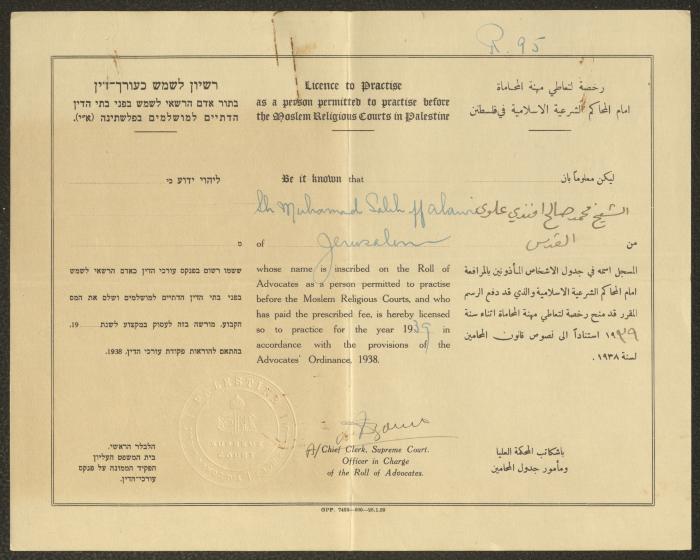 R. 95
רשיון לשמש כעורך־דין
בתור אדם הרשאי לשמש בפני בתי הדין
הדתיים למושלמים בפלשתינה (א״י).
Licence to Practise
as a person permitted to practise before
the Moslem Religious Courts in Palestine
رخصة لتعاطي مهنة المحاماة
امام المحاكم الشرعية الاسلامية في فلسطين
ליהוי ידוע כי
Be it known that
ليكن معلوماً بان
Sh Muhamad Salih ff Alawi
الشيخ محمد صالح افندي علوي
מ
of Jerusalem
من القدس
ששמו רשום בפנקס עורכי הדין כאדם הרשאי לשמש
בפני בתי הדין הדתיים למושלמים ושלם את המס
הקבוע, מורשה בזה לעסוק במקצוע לשנת 19,
בהתאם להוראות פקודת עורכי הדין, 1938.
whose name is inscribed on the Roll of
Advocates as a person permitted to practise
before the Moslem Religious Courts, and who
has paid the prescribed fee, is hereby licensed
so to practise for the year 1939 in
accordance with the provisions of the
Advocates' Ordinance, 1938.
المسجل اسمه في جدول الاشخاص المأذونين بالمرافعة
امام المحاكم الشرعية الاسلامية والذي قد دفع الرسم
المقرر قد منح رخصة لتعاطي مهنة المحاماة اثناء سنة
١٩٣٩ استناداً الى نصوص قانون المحامين
لسنة ١٩٣٨.
הלבלר הראשי,
בית המשפט העליון
הפקיד הממונה על פנקס
עורכי־הדין.
A/Chief Clerk, Supreme Court.
Officer in Charge
of the Roll of Advocates.
باشكاتب المحكمة العليا
ومأمور جدول المحامين
PALESTINE
SUPREME
COURT
GPP. 7459—600—25.1.39